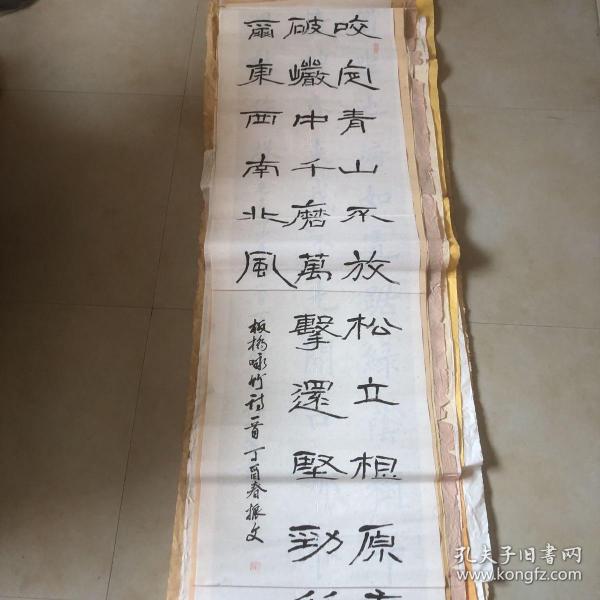 咬定青山不放松立根原
破巖中千磨萬擊還堅勁
爾東西南北風
板橋咏竹詩一首丁酉春振文
孔夫子旧书网
www.kongfz.com